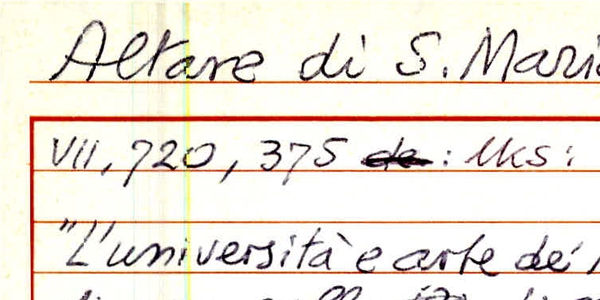 Altare di S. Mari
VII, 720, 375 de : Uks :
"L'università e arte de'